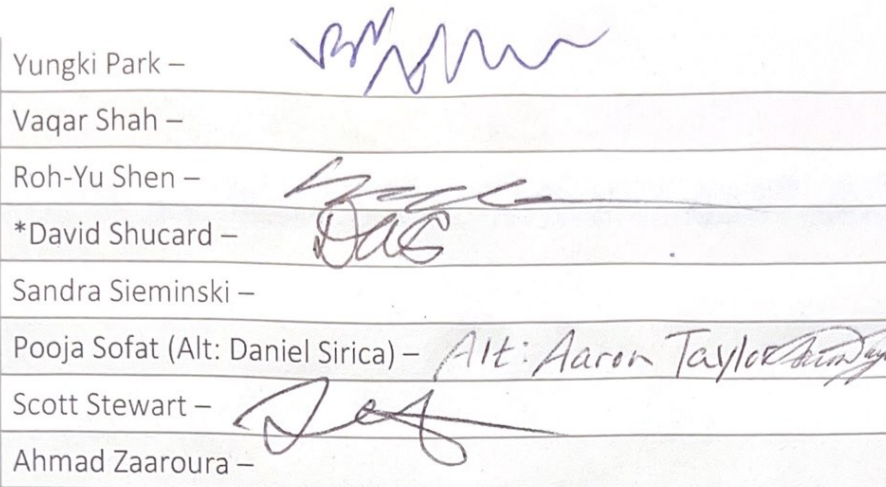 Yungki Park –
Vaqar Shah –
Roh-Yu Shen –
*David Shucard – DAS
Sandra Sieminski –
Pooja Sofat (Alt: Daniel Sirica) – Alt: Aaron Taylor
Scott Stewart –
Ahmad Zaaroura –